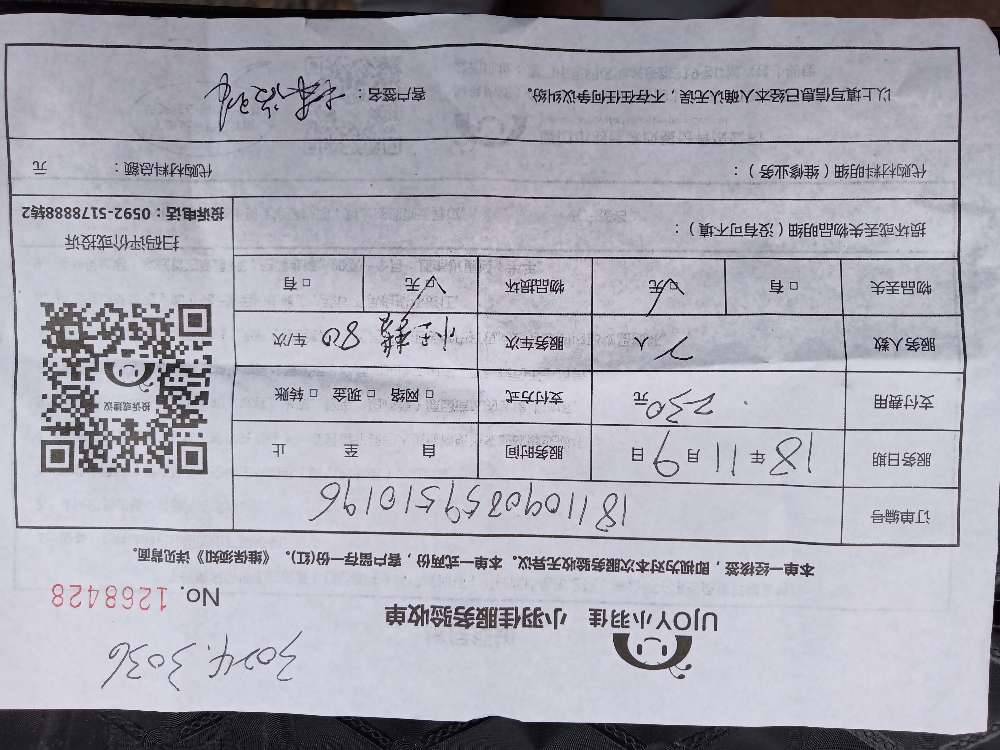 3024.3036
UJOY小羽佳 小羽佳服务验收单
No. 1268428
本单一经接签，即视为对本次服务验收无异议。本单一式两份，客户留存一份(红)。《维保须知》详见背面。
订单编号 1811090859510196
服务日期 18年11月9日 服务时间 自 至 止
支付费用 230元 支付方式 □ 网络 □ 现金 □ 转账
服务人数 2人 服务车次 80 车/次
物品丢失 □ 有 ☑ 无 物品损坏 ☑ 无 □ 有
投诉或建议
扫码评价或投诉
投诉电话：0592-5178888转2
损坏或丢失物品明细（没有可不填）：
代购材料明细（维修业务）： 代购材料总额： 元
以上填写信息已经本人确认无误，不存在任何争议纠纷。 客户签名：